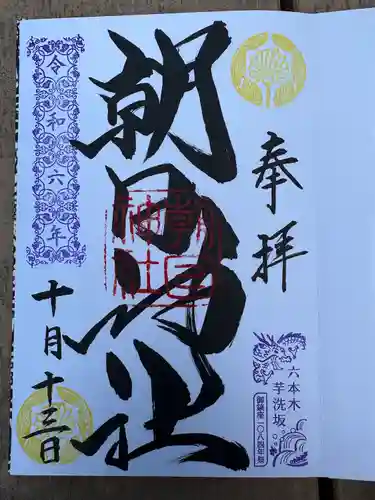 奉拝
六本木
芋洗坂
御鎮座一〇八四年祭
朝日神社
朝日
神社
令和六年
十月十三日